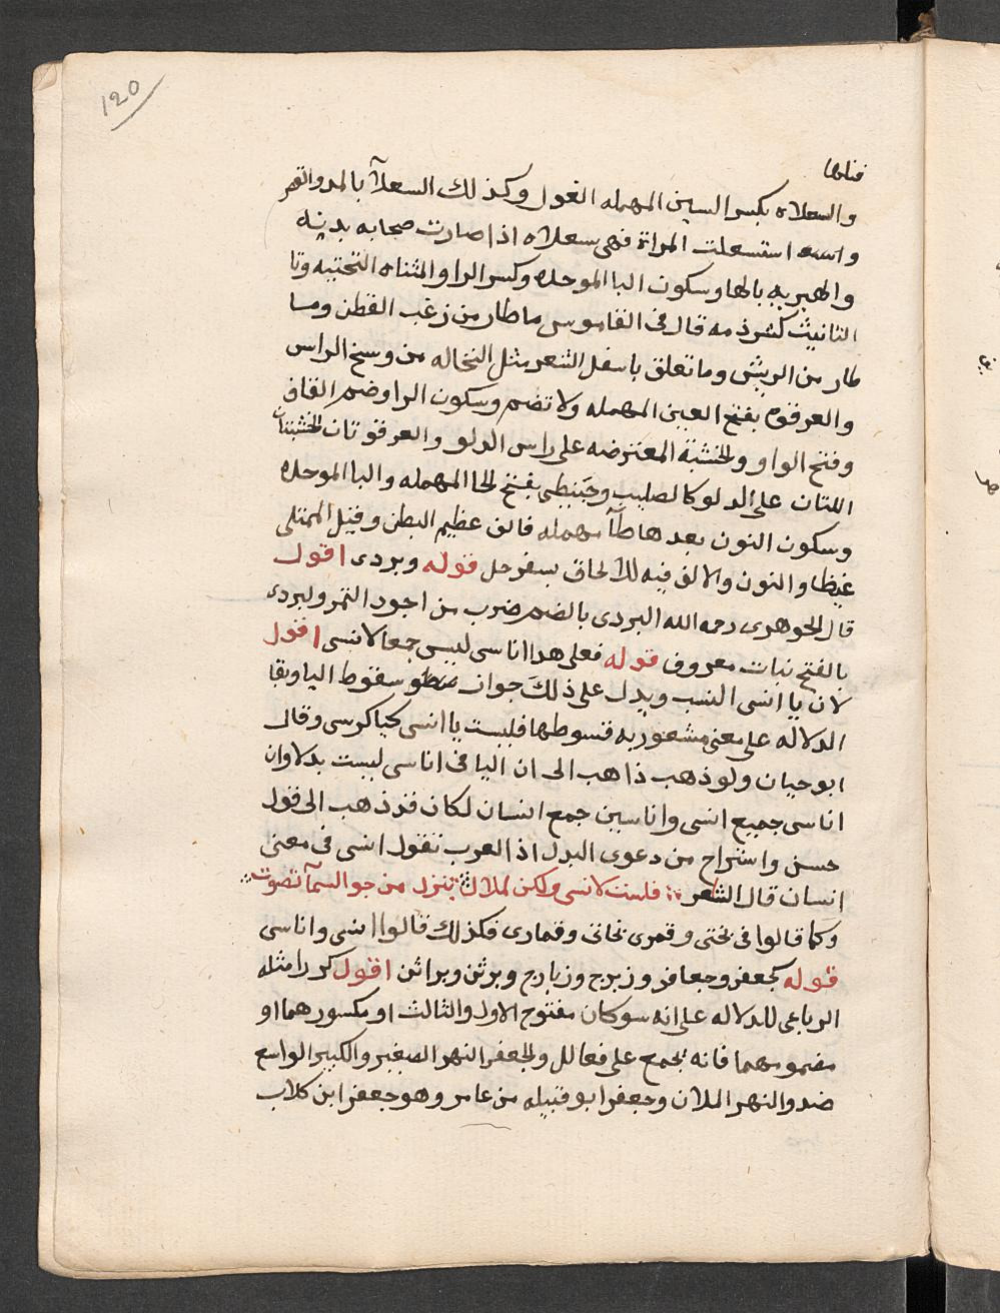 120
فتاها
والسعلاه بكسر السين المهمله الغول وكذلك السعلآ بالمد والقصر
واستسعلت المراة فهى سعلاه اذا صارت صخابه بذيه
والهبريه بالها وسكون البا الموحده وكسر الرا والمثناه التحتيه وتا
التانيث كشرذمه قال فى القاموس ما طار من زغب القطن وما
طار من الريش وما تعلق باسفل الشعر مثل النخاله من وسخ الراس
والعرقوه بفتح العين المهمله ولا تضم وسكون الرا وضم القاف
وفتح الواو والخشبة المعترضه على راس الدلو والعرقوتان الخشبتان
اللتان على الدلو كالصليب وحَبَنطى بفتح الحا المهمله والبا الموحده
وسكون النون بعدها طآ مهمله فالف عظيم البطن وقيل الممتلى
غيظا والنون والالف فيه للالحاق بسفرجل قوله وبردى اقول
قال الجوهرى رحمه الله البردى بالضم ضرب من اجود التمر والبردى
بالفتح نبات معروف قوله فعلى هذا اناسى ليس جمعا لانسى اقول
لان يا انسى النسب ويدل على ذلك جواز سقوط اليا وبقا
الدلاله على معنى مشعور به قسوطها فليست يا انسى كيا كرسى وقال
ابو حيان ولو ذهب ذاهب الى ان اليا فى اناسى ليست بدلا وان
اناسى جميع انسى واناسين جمع انسان لكان قد ذهب الى قول
حسن واستراح من دعوى البدل اذ العرب تقول انسى فى معنى
انسان قال الشاعر فلست لانسى ولكن لملاك تنزل من جو السمآ تصوت
وكما قالوا فى بختى وقمرى بخاتى وقمارى فكذلك قالوا انسى واناسى
قوله كجعفر وجعافر وزبرج وزبارج وبرثن وبراثن اقول كرر امثله
الرباعى للدلاله على انه سو كان مفتوح الاول والثالث او مكسورهما او
مضمومهما فانه يجمع على فعالل والجعفر النهر الصغير والكبير الواسع
ضد والنهر الملان وجعفر ابو قبيله من عامر وهو جعفر ابن كلاب